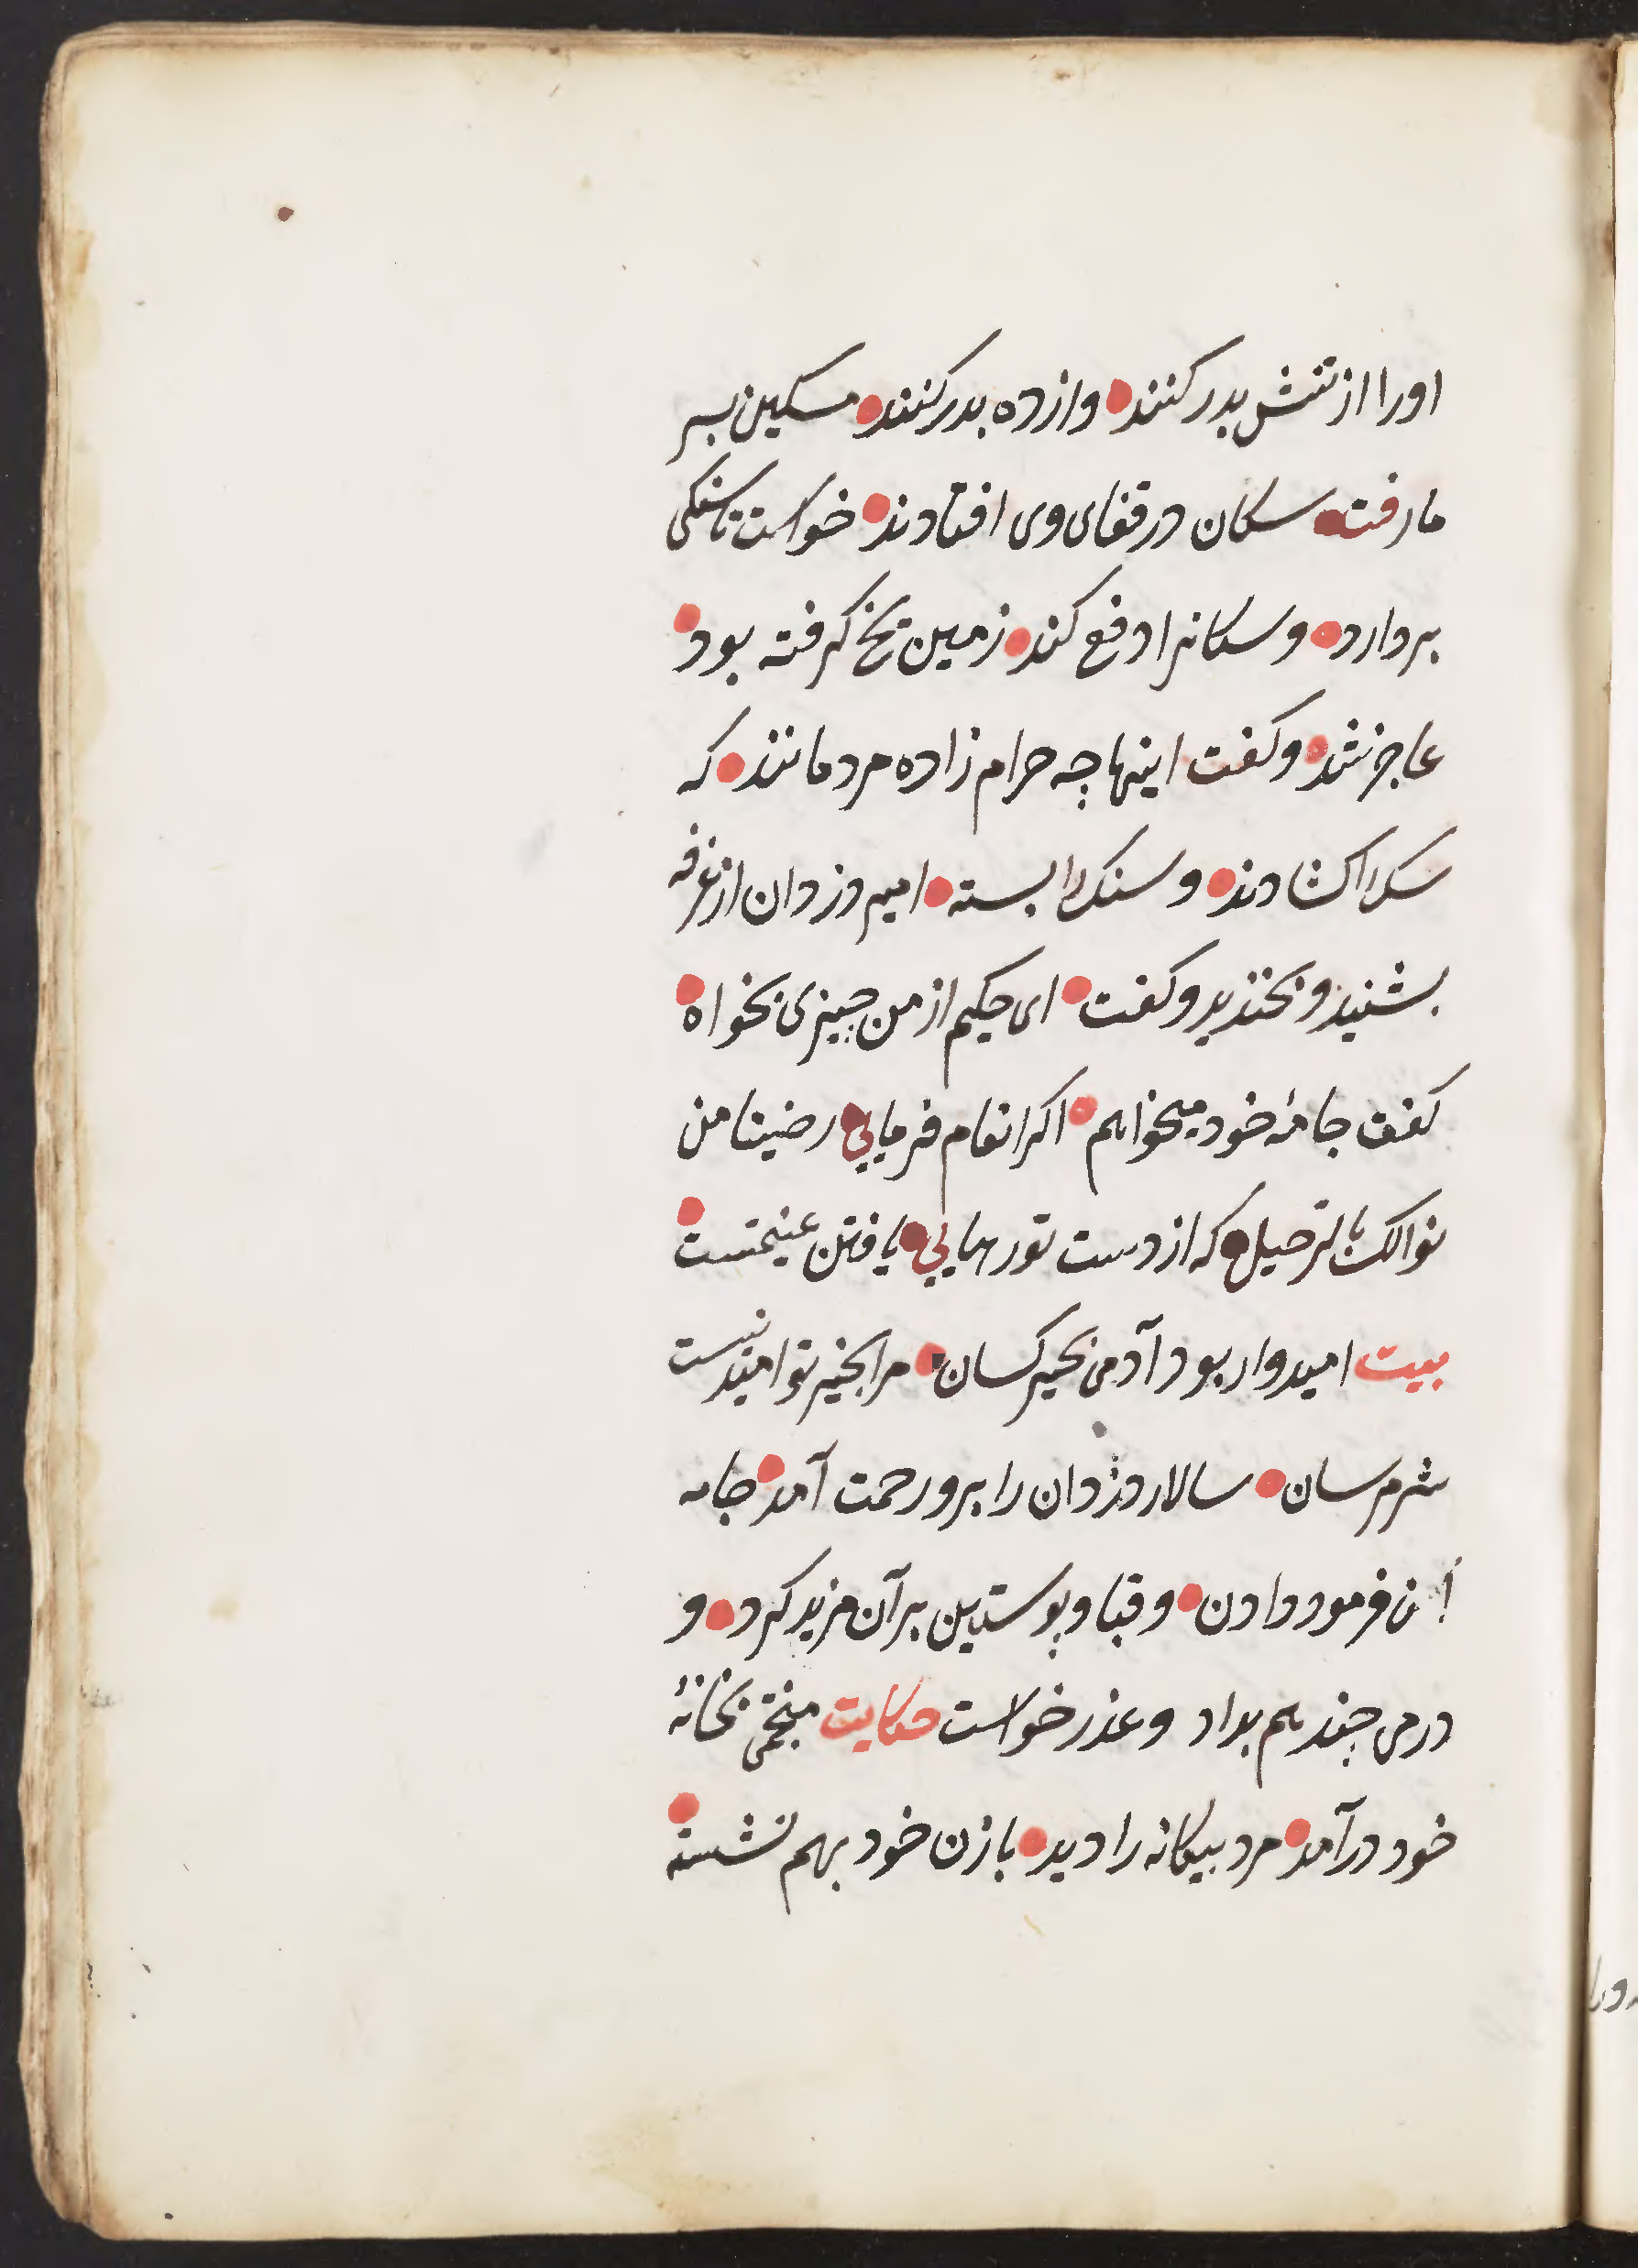 اورا از تنش بدر کنند وازده بدر کنند مسکین بسر
ما رفت سکان در قفای وی افتادند خواست تا سنکی
بردارد وسکانرا دفع کند زمین یخ کرفته بود
عاجز شد وکفت اینها چه حرام زاده مردمانند که
سک را کشادند وسنک را بسته امیر دزدان از غرفه
بشنید و بخندید و کفت ای حکیم از من چیزی بخواه
کفت جامۀ خود میخواهم اکر انعام فرمایی رضینا من
نوالک بالرحیل که از دست تو رهایی یافتن غنیمتست
بیت امیدوار بود آدمی بخیر کسان مرا بخیر تو امید نیست
شر مرسان سالار دزدان را برو رحمت آمد جامه
فرمود دادن وقبا و پوستین بر آن مزید کرد و
درمی چند هم بداد وعذر خواست حکایت منجمی بخانۀ
خود درآمد مرد بیکانه را دید با زن خود بهم نشسته